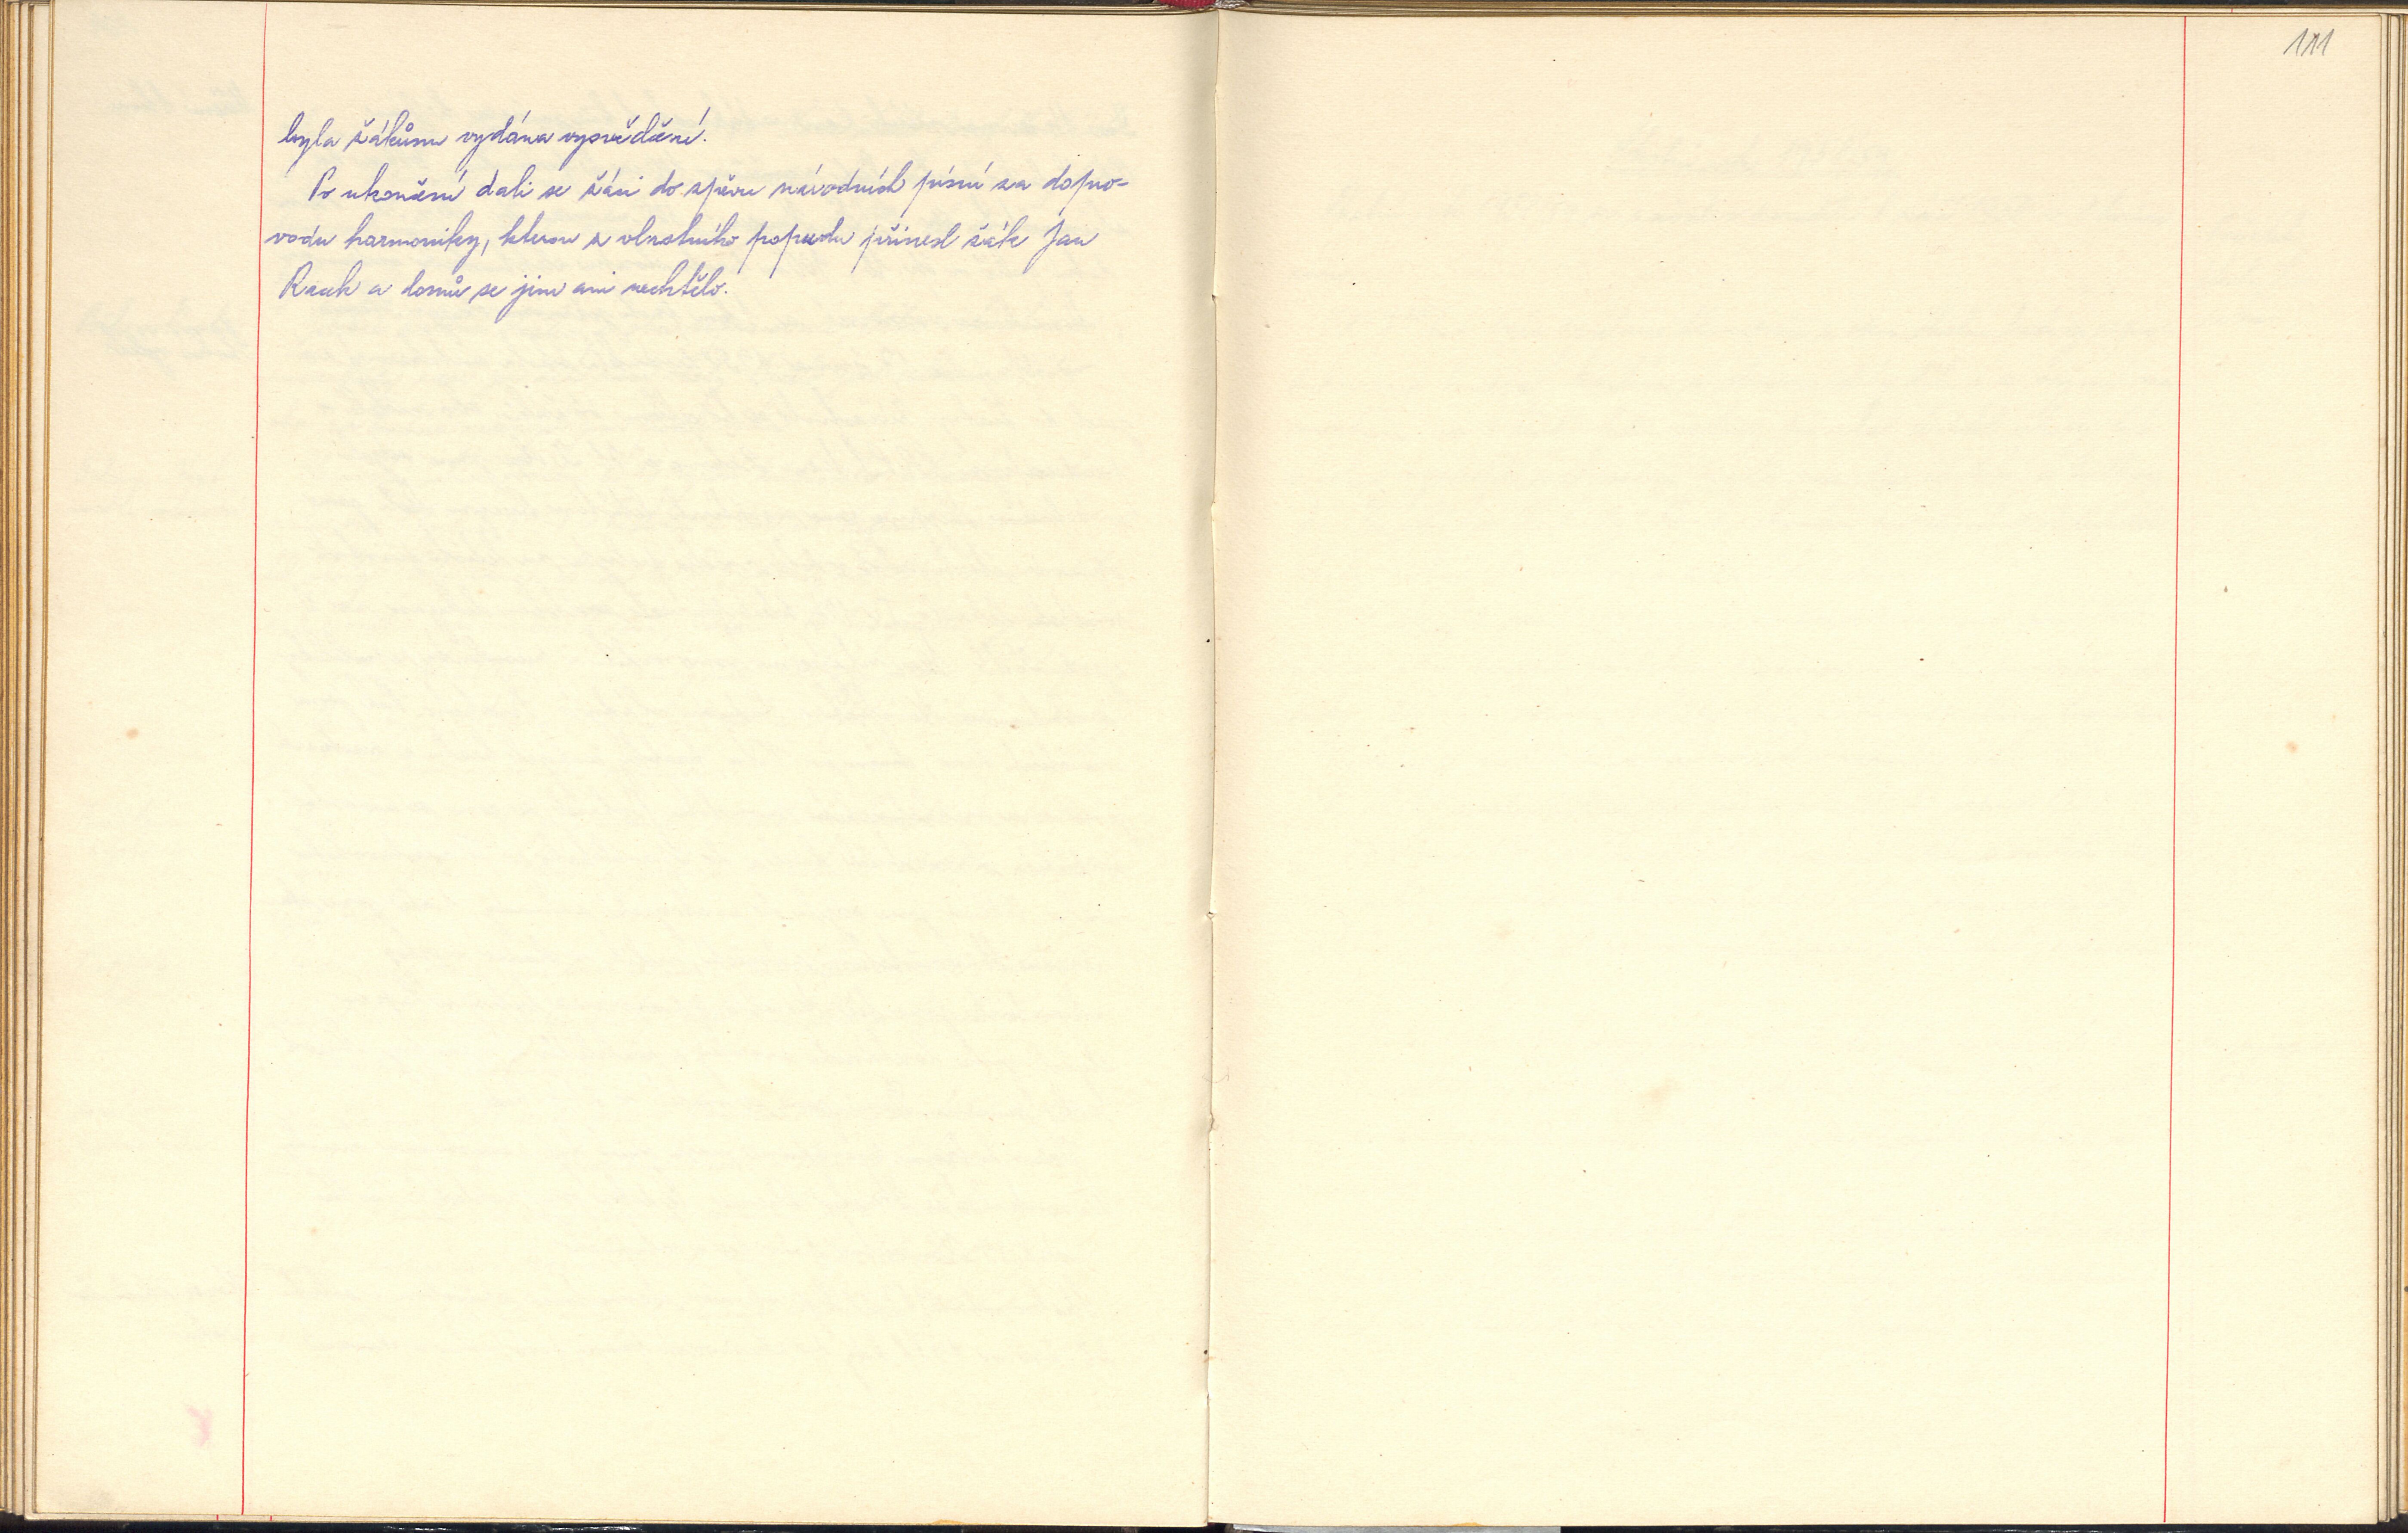 byla žákům vydána vysvědčení.
Po ukončení dali se žáci do zpěvu národních písní za dopro-
vodu harmoniky, kterou z vlastního popudu přinesl žák Jan
a domů se jim ani nechtělo.
111